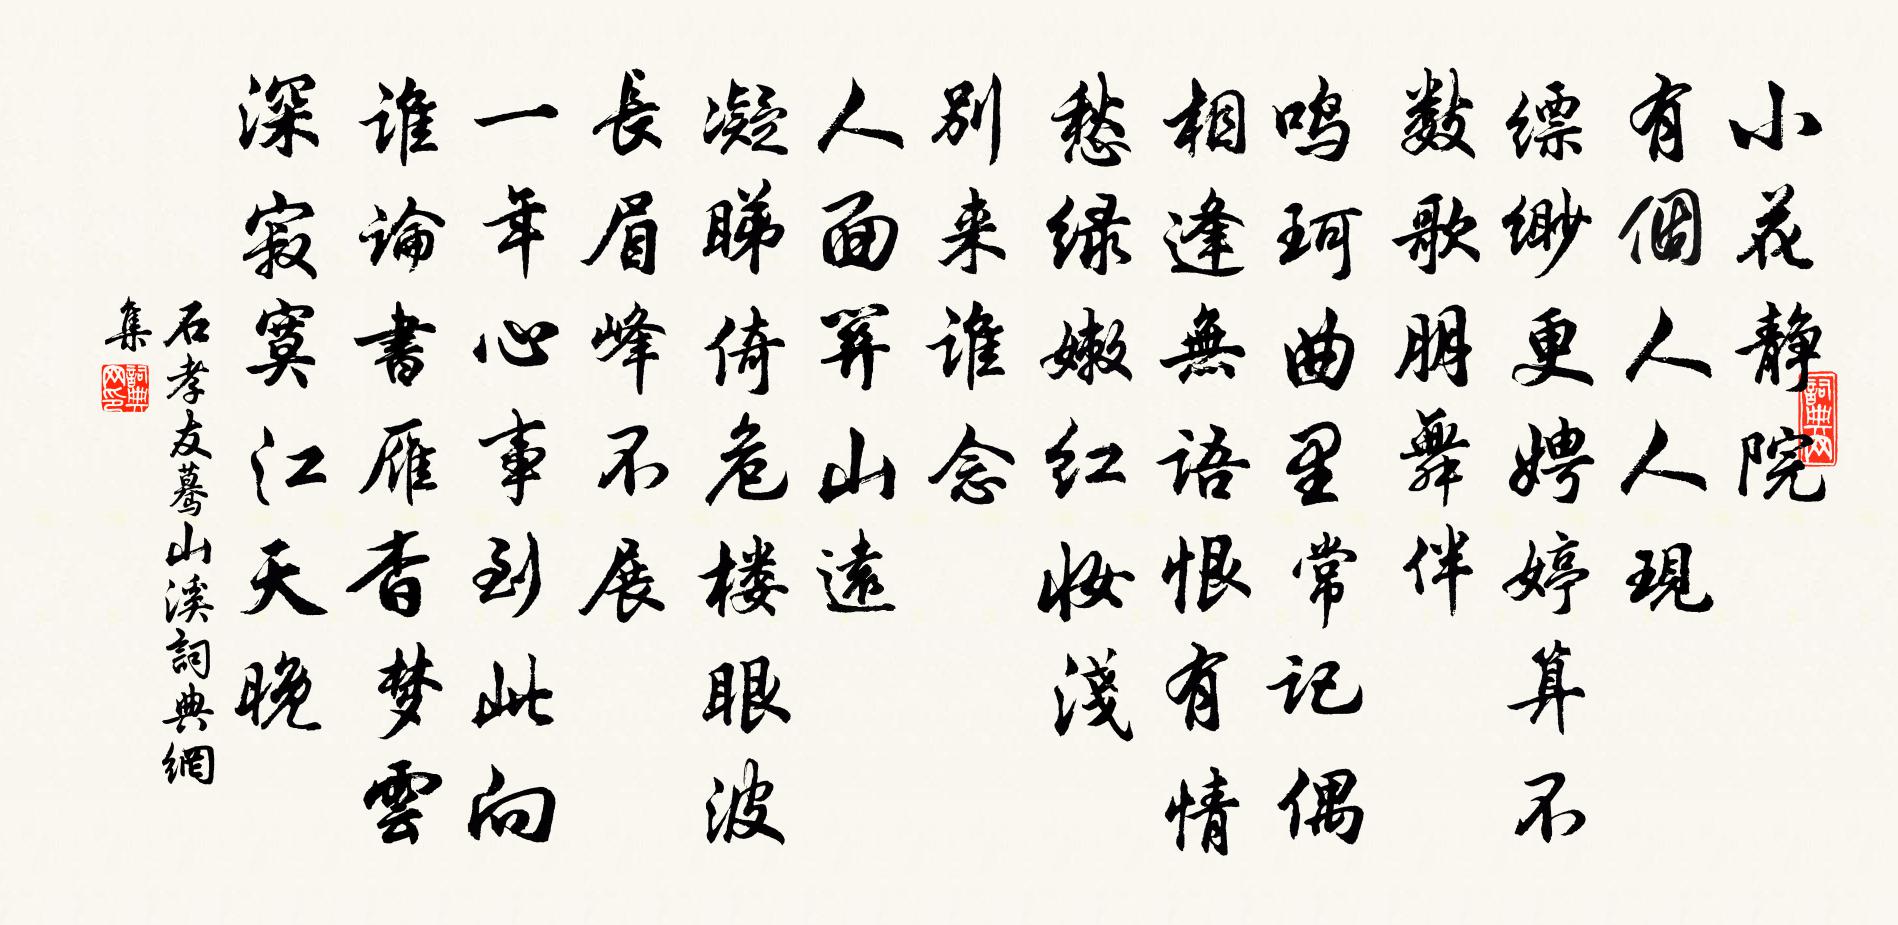 小花静院
有個人人現
缥缈更娉婷算不
数歌朋舞伴
鸣珂曲里常记偶
相逢無语恨有情
愁绿嫩红妆淺
别来谁念
人面关山遠
凝睇倚危楼眼波
長眉峰不展
一年心事到此向
谁論書雁杳梦雲
深寂寞江天晚
石孝友蓦山溪詞典網
集
詞典网
詞典网印